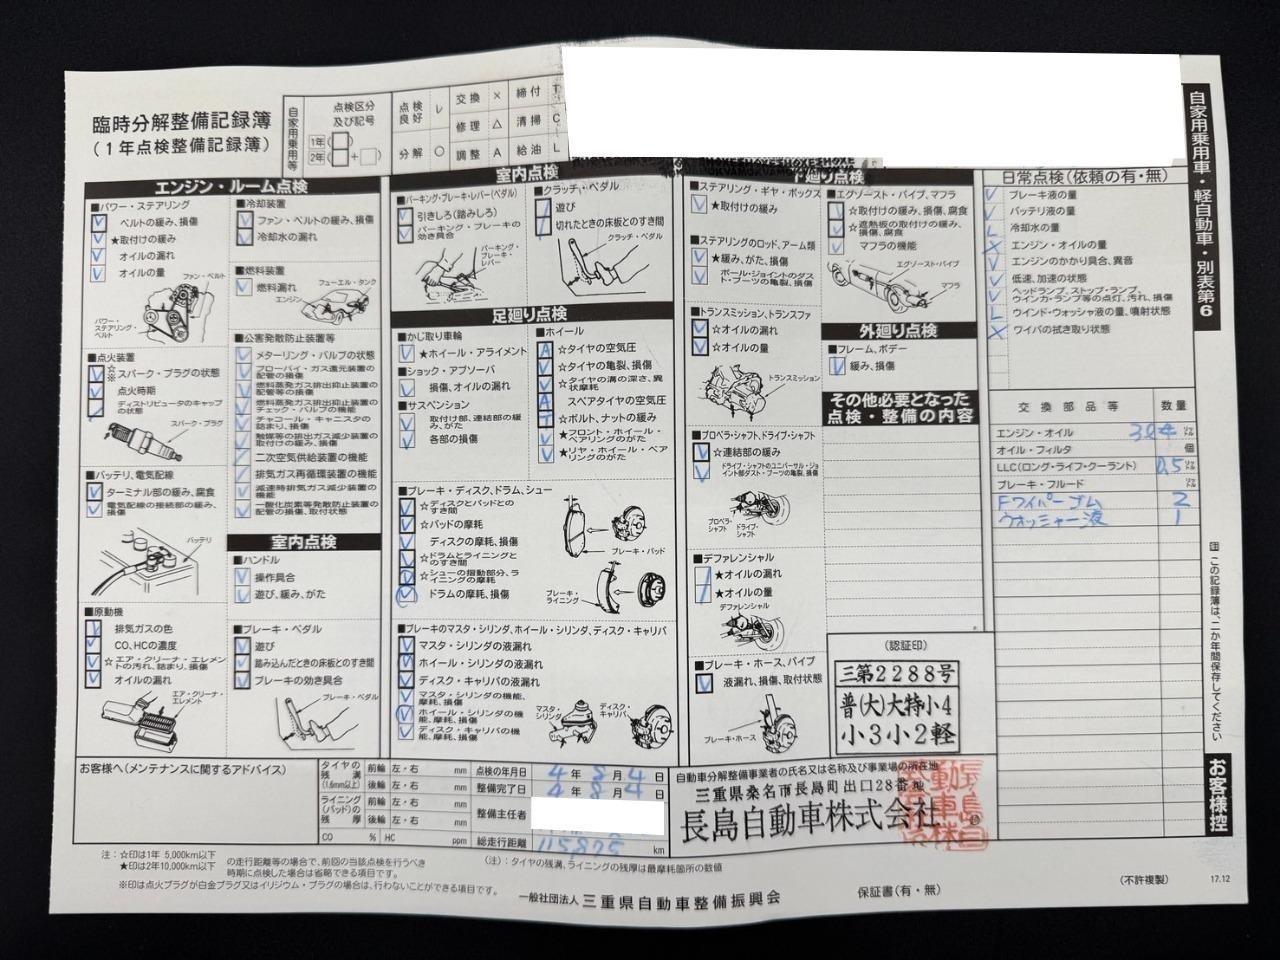 臨時分解整備記録簿
(1年点検整備記録簿)
自家用乗用等
点検区分及び記号
1年
2年
+
点検良好 レ
交換 ×
締付 T
修理 △
清掃 C
分解 ○
調整 A
給油 L
自家用乗用車・軽自動車・別表第6
エンジン・ルーム点検
■パワー・ステアリング
ベルトの緩み、損傷
★取付けの緩み
オイルの漏れ
オイルの量
ファン・ベルト
パワー・ステアリング・ベルト
■点火装置
☆※スパーク・プラグの状態
点火時期
ディストリビュータのキャップの状態
スパーク・プラグ
■バッテリ、電気配線
ターミナル部の緩み、腐食
電気配線の接続部の緩み、損傷
バッテリ
■原動機
排気ガスの色
CO、HCの濃度
☆エア・クリーナ・エレメントの汚れ、詰まり、損傷
オイルの漏れ
エア・クリーナ・エレメント
■冷却装置
ファン・ベルトの緩み、損傷
冷却水の漏れ
■燃料装置
燃料漏れ
フューエル・タンク
エンジン
■公害発散防止装置等
メターリング・バルブの状態
ブローバイ・ガス還元装置の配管の損傷
燃料蒸発ガス排出抑止装置の配管等の損傷
燃料蒸発ガス排出抑止装置のチェック・バルブの機能
チャコール・キャニスタの詰まり、損傷
触媒等の排出ガス減少装置の取付けの緩み、損傷
二次空気供給装置の機能
排気ガス再循環装置の機能
減速時排気ガス減少装置の機能
一酸化炭素等発散防止装置の配管の損傷、取付状態
室内点検
■ハンドル
操作具合
遊び、緩み、がた
■ブレーキ・ペダル
遊び
踏み込んだときの床板とのすき間
ブレーキの効き具合
ブレーキ・ペダル
室内点検
■パーキング・ブレーキ・レバー(ペダル)
引きしろ(踏みしろ)
パーキング・ブレーキの効き具合
パーキング・ブレーキ・レバー
■クラッチ・ペダル
遊び
切れたときの床板とのすき間
クラッチ・ペダル
足廻り点検
■かじ取り車輪
★ホイール・アライメント
■ショック・アブソーバ
損傷、オイルの漏れ
■サスペンション
取付け部、連結部の緩み、がた
各部の損傷
■ホイール
A ☆タイヤの空気圧
☆タイヤの亀裂、損傷
☆タイヤの溝の深さ、異状摩耗
A スペアタイヤの空気圧
T ☆ボルト、ナットの緩み
★フロント・ホイール・ベアリングのがた
★リヤ・ホイール・ベアリングのがた
■ブレーキ・ディスク、ドラム、シュー
☆ディスクとパッドとのすき間
☆パッドの摩耗
ディスクの摩耗、損傷
☆ドラムとライニングとのすき間
☆シューの摺動部分、ライニングの摩耗
ドラムの摩耗、損傷
ブレーキ・パッド
ブレーキ・ライニング
■ブレーキのマスタ・シリンダ、ホイール・シリンダ、ディスク・キャリパ
マスタ・シリンダの液漏れ
ホイール・シリンダの液漏れ
ディスク・キャリパの液漏れ
マスタ・シリンダの機能、摩耗、損傷
ホイール・シリンダの機能、摩耗、損傷
ディスク・キャリパの機能、摩耗、損傷
マスタ・シリンダ
ディスク・キャリパ
下廻り点検
■ステアリング・ギヤ・ボックス
★取付けの緩み
■ステアリングのロッド、アーム類
★緩み、がた、損傷
ボール・ジョイントのダスト・ブーツの亀裂、損傷
■トランスミッション、トランスファ
☆オイルの漏れ
☆オイルの量
トランスミッション
■プロペラ・シャフト、ドライブ・シャフト
☆連結部の緩み
ドライブ・シャフトのユニバーサル・ジョイント部ダスト・ブーツの亀裂、損傷
プロペラ・シャフト
ドライブ・シャフト
■デファレンシャル
★オイルの漏れ
★オイルの量
デファレンシャル
■ブレーキ・ホース、パイプ
液漏れ、損傷、取付状態
ブレーキ・ホース
■エグゾースト・パイプ、マフラ
☆取付けの緩み、損傷、腐食
☆遮熱板の取付けの緩み、損傷、腐食
マフラの機能
エグゾースト・パイプ
マフラ
外廻り点検
■フレーム、ボデー
緩み、損傷
その他必要となった点検・整備の内容
(認証印)
三第2288号
普(大)大特小4
小3小2軽
日常点検(依頼の有・無)
ブレーキ液の量
バッテリ液の量
L 冷却水の量
× エンジン・オイルの量
エンジンのかかり具合、異音
低速、加速の状態
ヘッドランプ、ストップ・ランプ、ウインカ・ランプ等の点灯、汚れ、損傷
L ウインド・ウォッシャ液の量、噴射状態
× ワイパの拭き取り状態
交換部品等 数量
エンジン・オイル リットル
オイル・フィルタ 個
LLC(ロング・ライフ・クーラント) 0.5 リットル
ブレーキ・フルード リットル
Fワイパーゴム 2
ウォッシャー液 1
注 この記録簿は、二か年間保存してください
お客様控
お客様へ(メンテナンスに関するアドバイス)
タイヤの残溝(1.6mm以上)
前輪 左・右 mm
後輪 左・右 mm
ライニング(パッド)の残厚
前輪 左・右 mm
後輪 左・右 mm
CO % HC ppm
点検の年月日 4年8月4日
整備完了日 4年8月4日
整備主任者
総走行距離 115825 km
自動車分解整備事業者の氏名又は名称及び事業場の所在地
三重県桑名市長島町出口28番地
長島自動車株式会社
注:☆印は1年 5,000km以下
★印は2年10,000km以下
の走行距離等の場合で、前回の当該点検を行うべき時期に点検した場合は省略できる項目です。
※印は点火プラグが白金プラグ又はイリジウム・プラグの場合は、行わないことができる項目です。
(注):タイヤの残溝、ライニングの残厚は最摩耗箇所の数値
一般社団法人 三重県自動車整備振興会
保証書(有・無)
(不許複製)
17.12